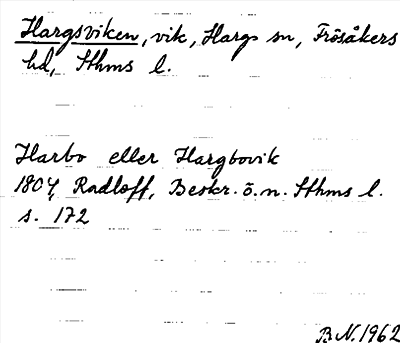 Hargsviken, vik, Hargs sn, Frösåkers
hd, Sthms l.
Harbo eller Hargbovik
1804, Radloff, Beskr. ö. n. Sthms l.
s. 172
B.N. 1962